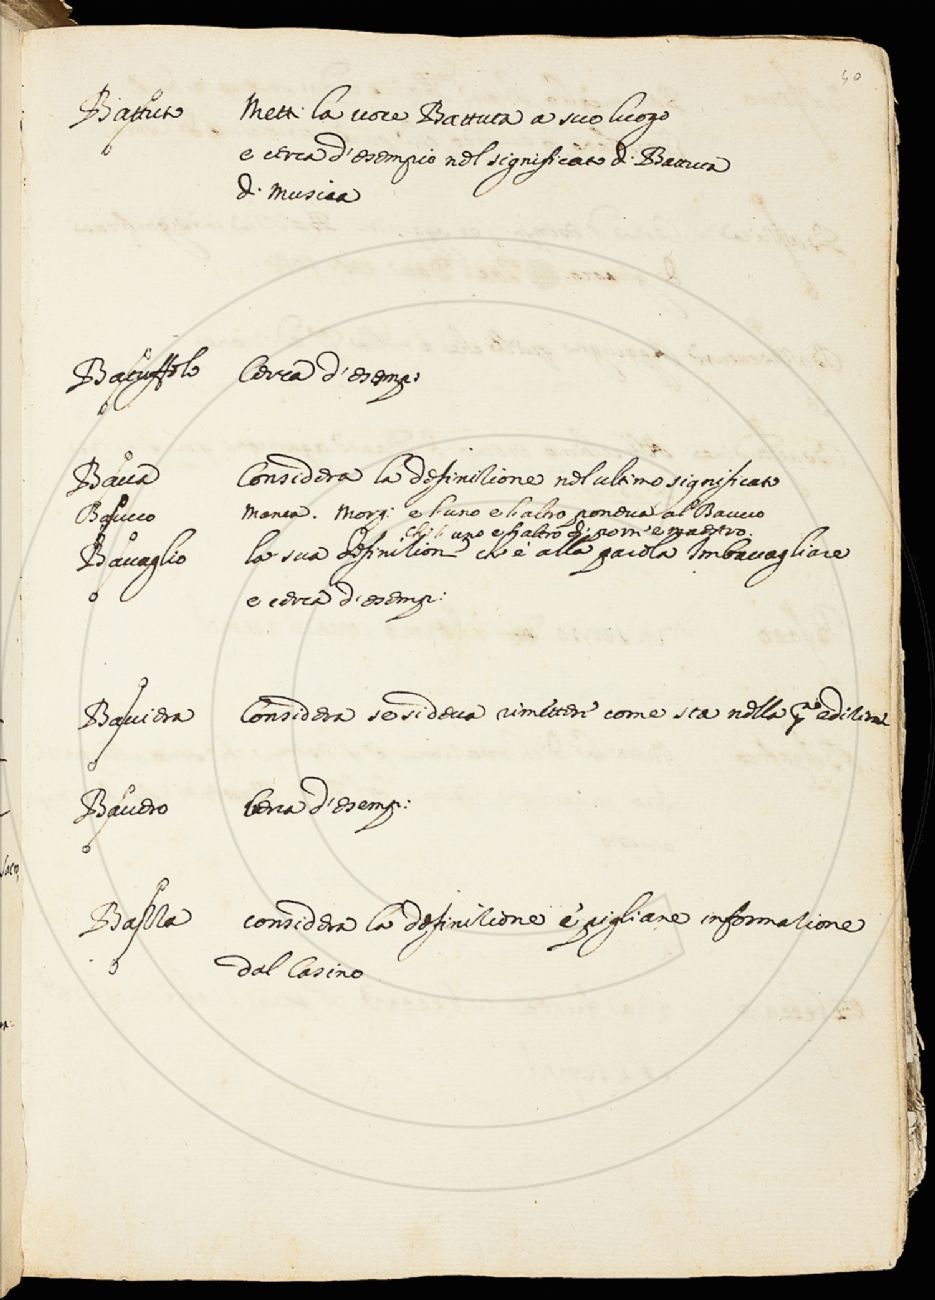 50
Battuto Metti la voce Battuta a suo luogo
e cerca d'esempio nel significato di Battuta
di Musica
Batuffolo Cerca d'esemp:
Bava Considera la definitione nel ultimo significato
Bavuco Manca. Morg: e l'uno e l'altro poneva al Bavuco
che l'uno e l'altro di sorri e maestro.
Bavaglio la sua definition che è alla parola Imbavagliare
e cerca d'esemp:
Baviera Considera se si deva rimettere come sta nella pa editione
Bavero Cerca d'esemp:
considera la definitione e pigliane informatione
dal Casino